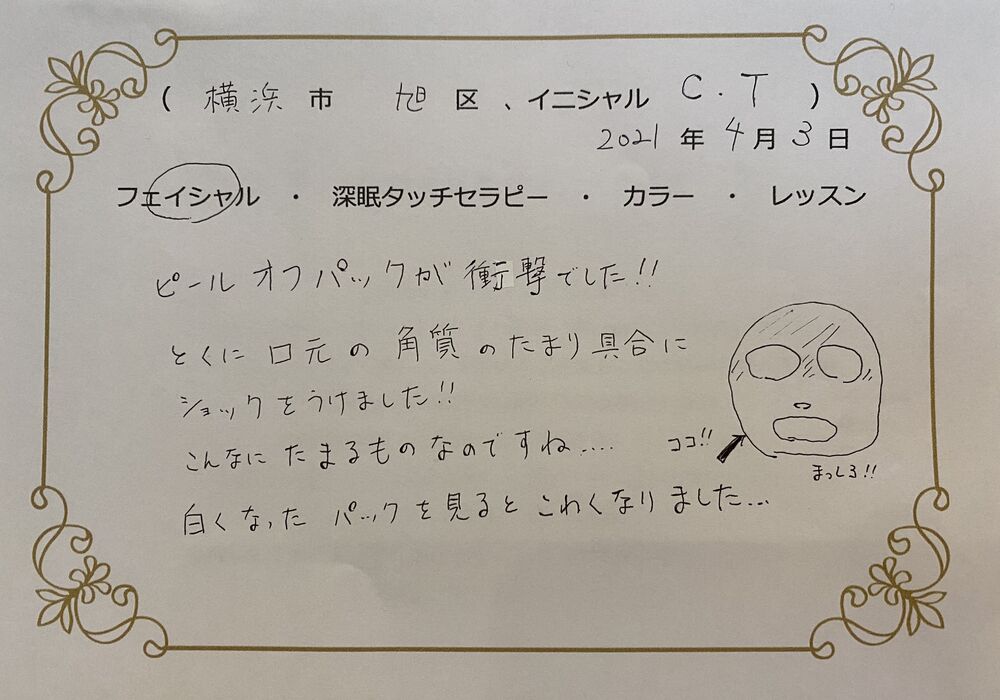 ( 横浜 市 旭 区 、イニシャル C.T )
2021 年 4 月 3 日
フェイシャル ・ 深眠タッチセラピー ・ カラー ・ レッスン
ピールオフパックが衝撃でした!!
とくに口元の角質のたまり具合に
ショックをうけました!!
こんなにたまるものなのですね....
ココ!!
まっしろ!!
白くなったパックを見るとこわくなりました...